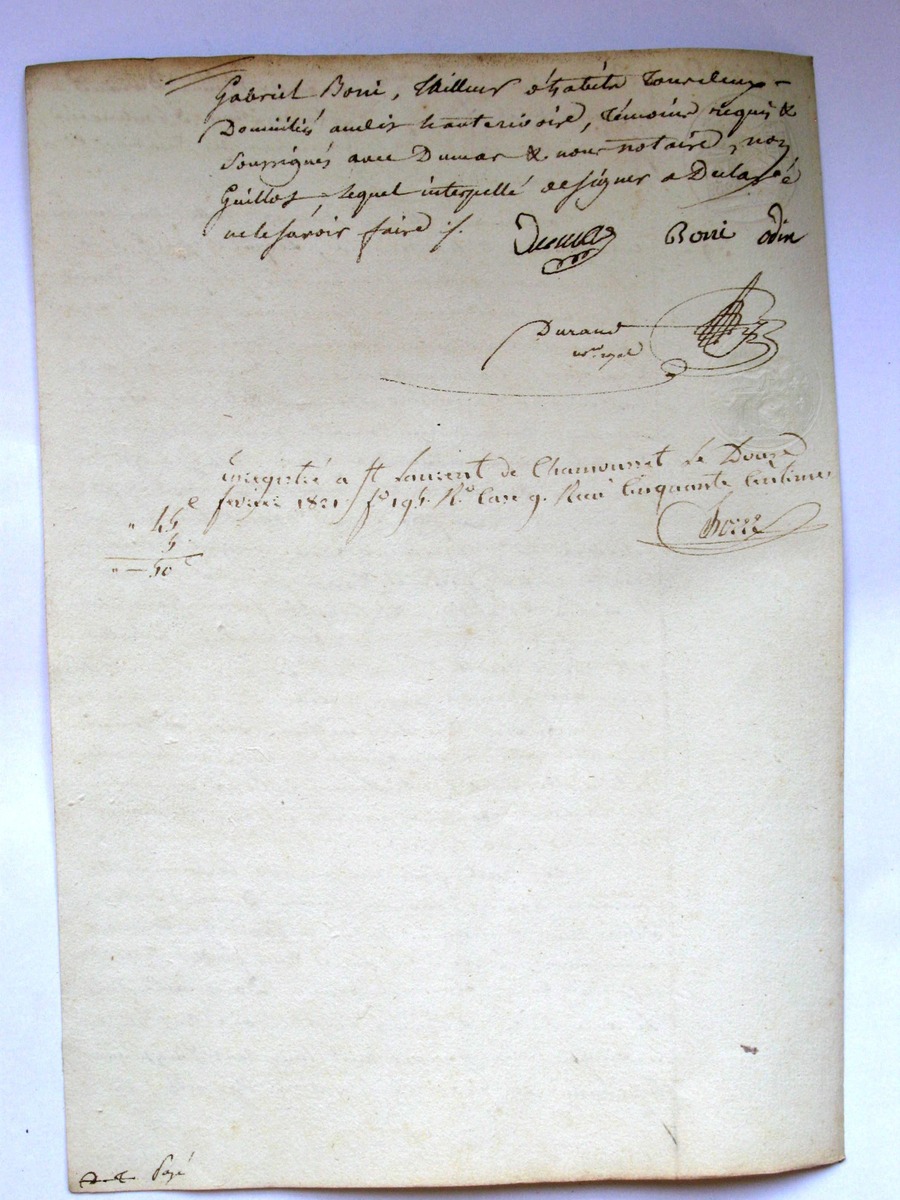 Gabriel Borie, tailleur d'habits tous deux
Domiciliés audit hauterivoire, témoins requis &
Soussignés avec Dumas & nous notaire, non
Guillot lequel interpellé de signer a Déclaré
ne le savoir faire ./.
Dumas Borie Odin
Durand
nre. royal
Enregistré a St Laurent de Chamousset Le Douze
fevrier 1821 fo 195. Ro. Case 9. Recu Cinquante Centimes
" 45 c
5.
" — 50 c
Payé